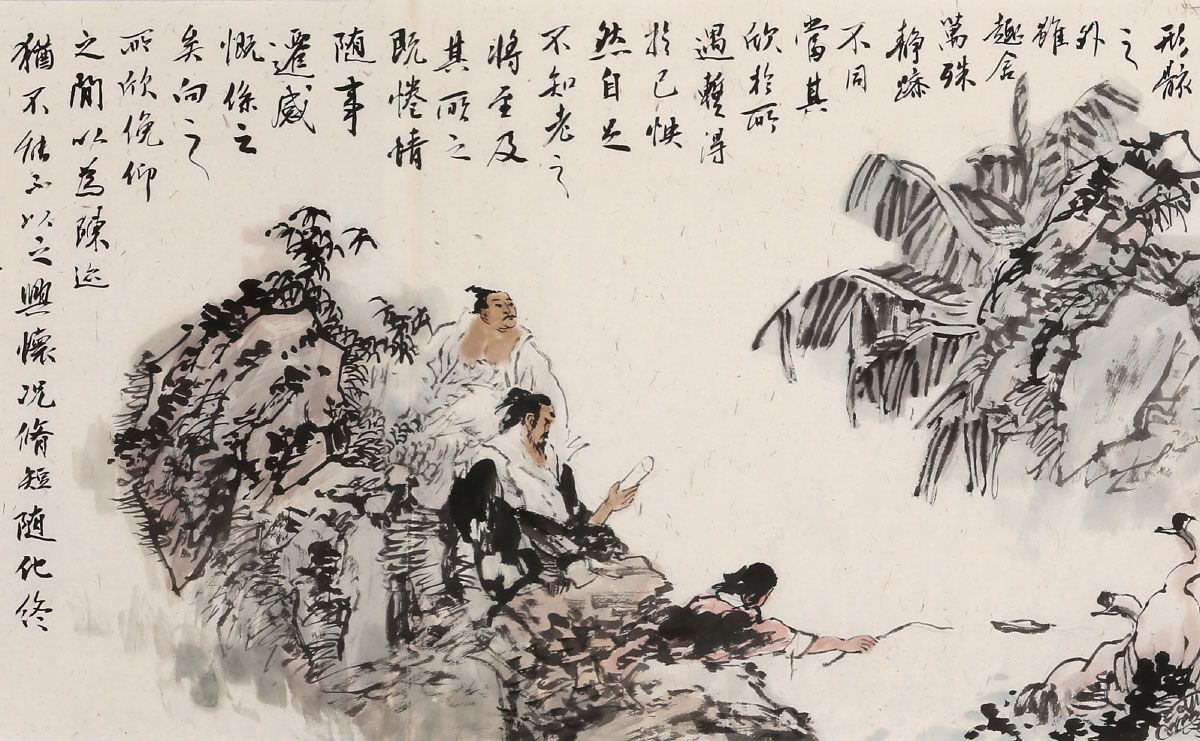 形骸
之
外
雖
趣舍
萬殊
静躁
不同
當其
欣於所
遇暫得
於己怏
然自足
不知老之
將至及
其所之
既惓情
随事
遷感
慨係之
矣向之
所欣俛仰
之間以為陳迹
猶不能不以之興懷况脩短随化終